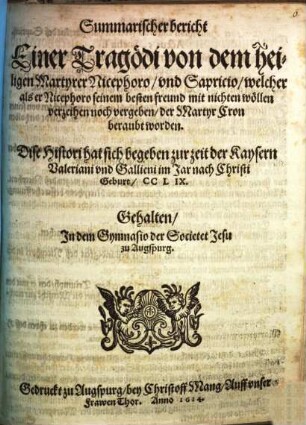 Summarischer bericht
Einer Tragödi von dem hei-
ligen Martyrer Nicephoro/ vnd Sapricio/ welcher
als er Nicephoro seinem besten freund mit nichten wöllen
verzeihen noch vergeben/ der Martyr Cron
beraubt worden.
Dise Histori hat sich begeben zur zeit der Kaysern
Valeriani vnd Gallieni im Jar nach Christi
Geburt/ CC LIX.
Gehalten/
In dem Gymnasio der Societet Jesu
zu Augspurg.
Gedruckt zu Augspurg/ bey Christoff Mang/ Auff vnser
Frawen Thor. Anno 1614.